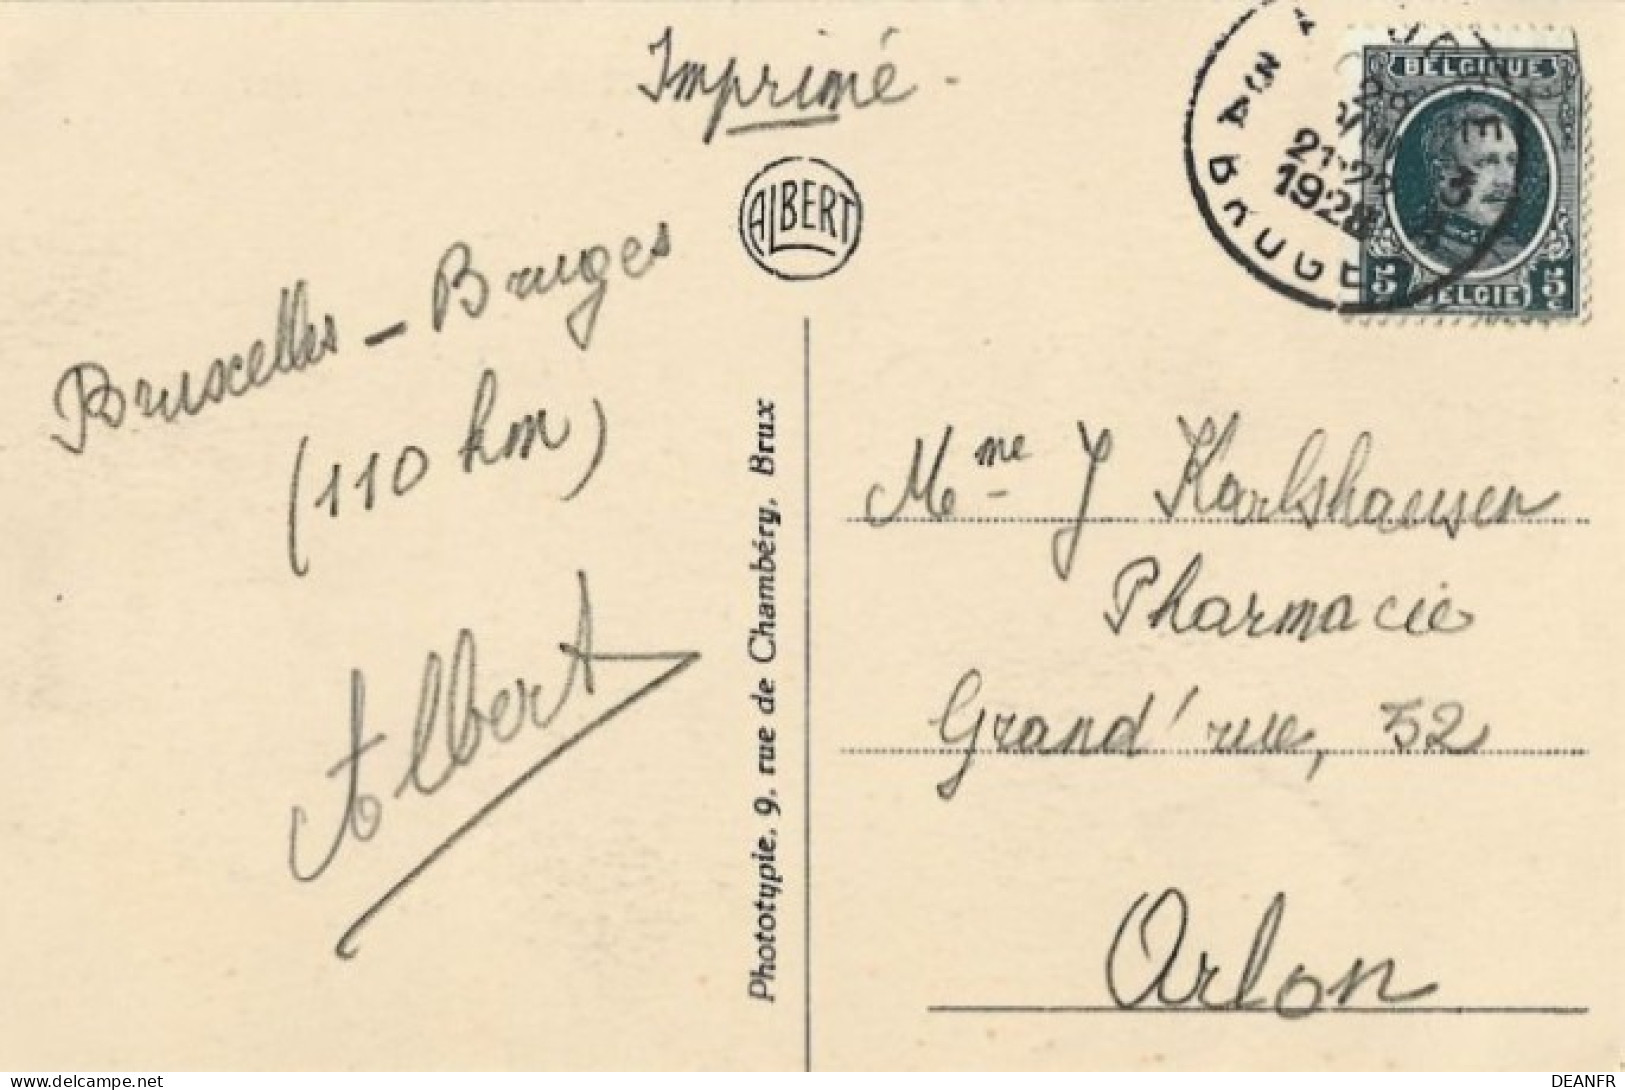 Imprimé.
ALBERT
Bruxelles - Bruges
(110 km)
Albert
Phototypie, 9, rue de Chambéry, Brux
BELGIQUE
21-22
1928
5 5
BELGIE
Mme J Karlshausen
Pharmacie
Grand'rue, 52
Arlon
DEANFR